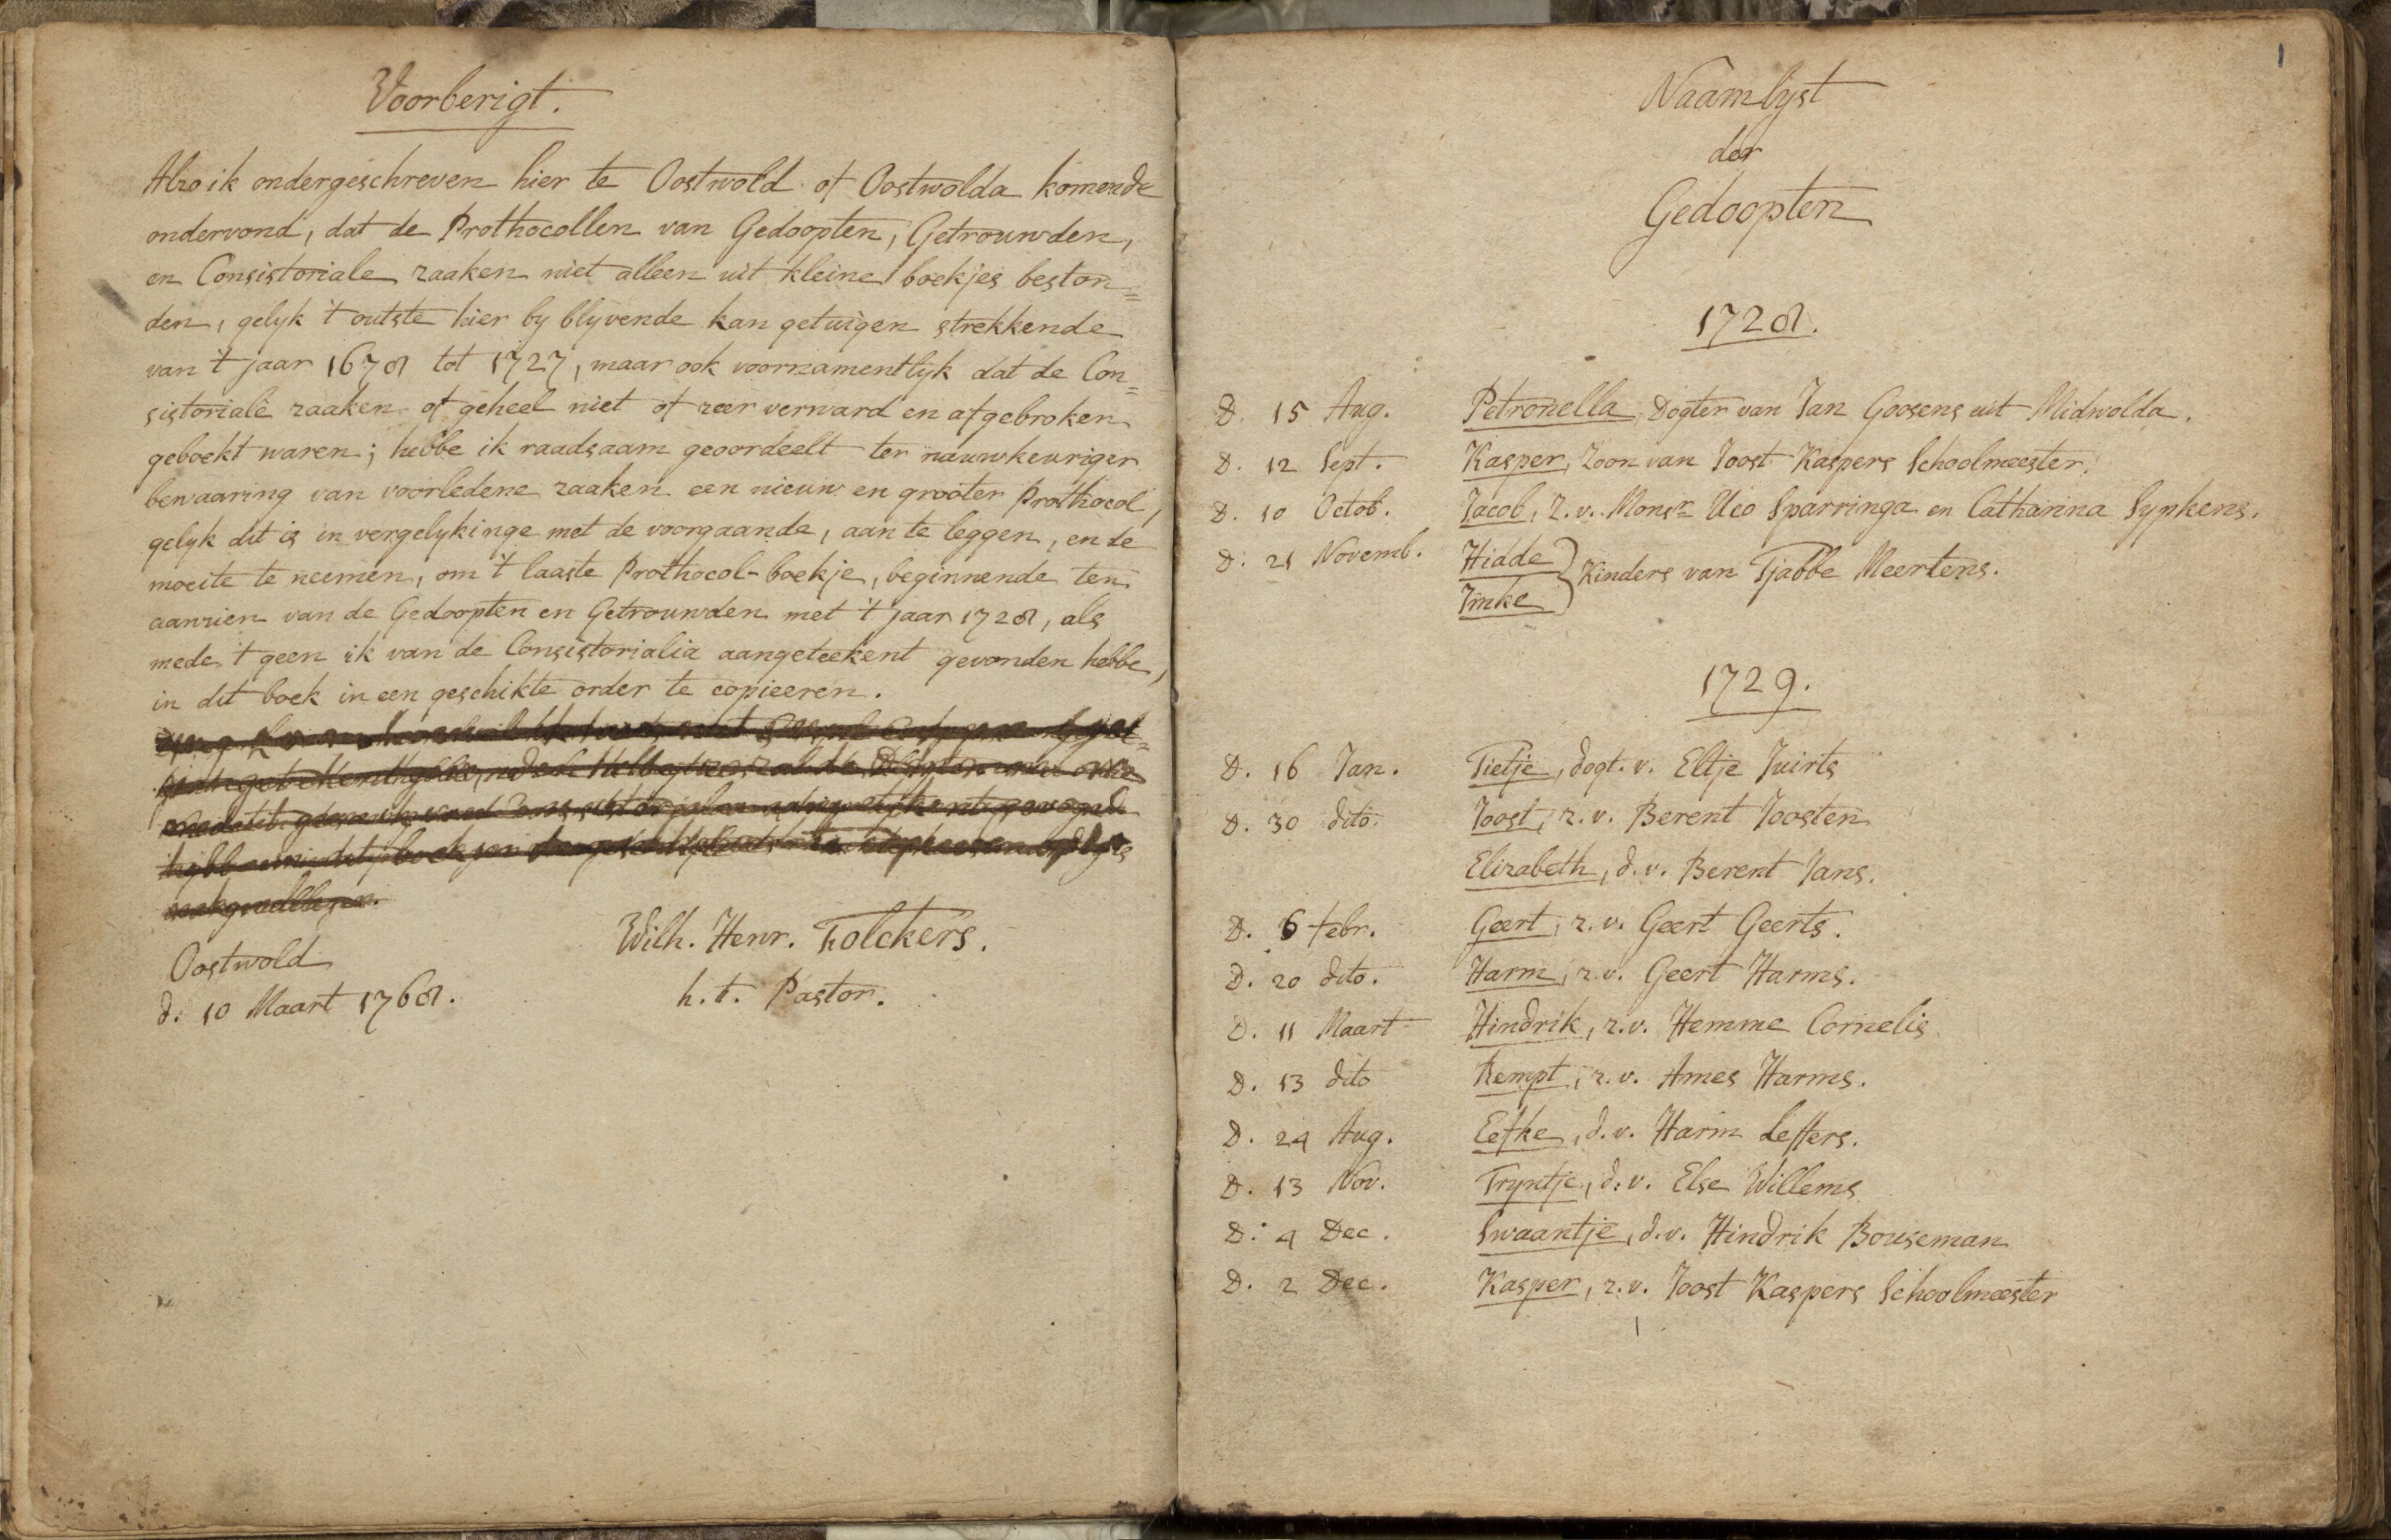 Voorberigt.
Alzo ik ondergeschreven hier te Oostwold of Oostwolda komende
ondervond, dat de Prothocollen van Gedoopten, Getrouwden,
en Consistoriale zaaken niet alleen uit kleine boekjes beston=
den, gelyk 't outste hier by blyvende kan getuigen strekkende
van 't jaar 1678 tot 1727, maar ook voornamentlyk dat de Con=
sistoriale zaaken of geheel niet of zeer verward en afgebroken
geboekt waren; hebbe ik raadsaam geoordeelt ter nauwkeuriger
bewaaring van voorledene zaaken een nieuw en grooter Prothocol,
gelyk dit is in vergelykinge met de voorgaande, aan te leggen, en de
moeite te neemen, om 't laaste Prothocol-boekje, beginnende ten
aanzien van de Gedoopten en Getrouwden met 't jaar 1728, als
mede 't geen ik van de Consistorialia aangeteekent gevonden hebbe,
in dit boek in een geschikte order te copieeren.
Oostwold
d. 10 Maart 1768.
Wilh. Henr. Folckers.
h.t. Pastor.
1
Naamlyst
der
Gedoopten
1728.
D. 15 Aug. Petronella, Dogter van Jan Goosens uit Midwolda.
D. 12 Sept. Kasper, Zoon van Joost Kaspers Schoolmeester.
D. 10 Octob. Jacob, z.v. Monsr Uco Sparringa en Catharina Sypkens.
D. 21 Novemb. Hidde
Imke } Kinders van Tjabbe Meertens.
1729.
D. 16 Jan. Tietje, dogt. v. Eltje Juirts
D. 30 dito. Joost, z.v. Berent Joosten
Elizabeth, d.v. Berent Jans.
D. 6 Febr. Geert, z.v. Geert Geerts.
D. 20 dito. Harm, z.v. Geert Harms.
D. 11 Maart Hindrik, z.v. Hemme Cornelis
D. 13 dito Rempt, z.v. Ames Harms.
D. 24 Aug. Eefke, d.v. Harm Leffers.
D. 13 Nov. Tryntje, d.v. Else Willems
D. 4 Dec. Swaantje, d.v. Hindrik Bouseman
D. 2 Dec. Kasper, z.v. Joost Kaspers Schoolmeester